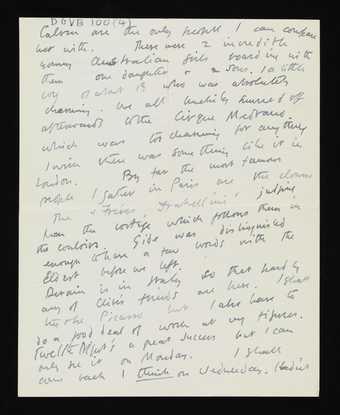 DGVB 100(4)
Calvin are the only people I can compare
her with. There were 2 incredibly
young Australian girls boarding with
them one daughter & a son, a little
boy of about 13 who was absolutely
charming. We all hurried off
afterwards to the Cirque Medrano.
which was too charming for anything
I wish there was something like it in
London. By far the most famous
people I gather in Paris are the clowns
The "Frères Fratellini", judging
from the cortège which follows them in
the couloirs. Gide was distinguished
enough to have a few words with the
eldest before we left.
Derain is in Italy so that hardly
any of Clive's friends are here. I shall
see Picasso but I also have to
do a good deal of work at my figures.
Twelfth Night's a great success but I can
only see it on Monday. I shall
come back I think on Wednesday.